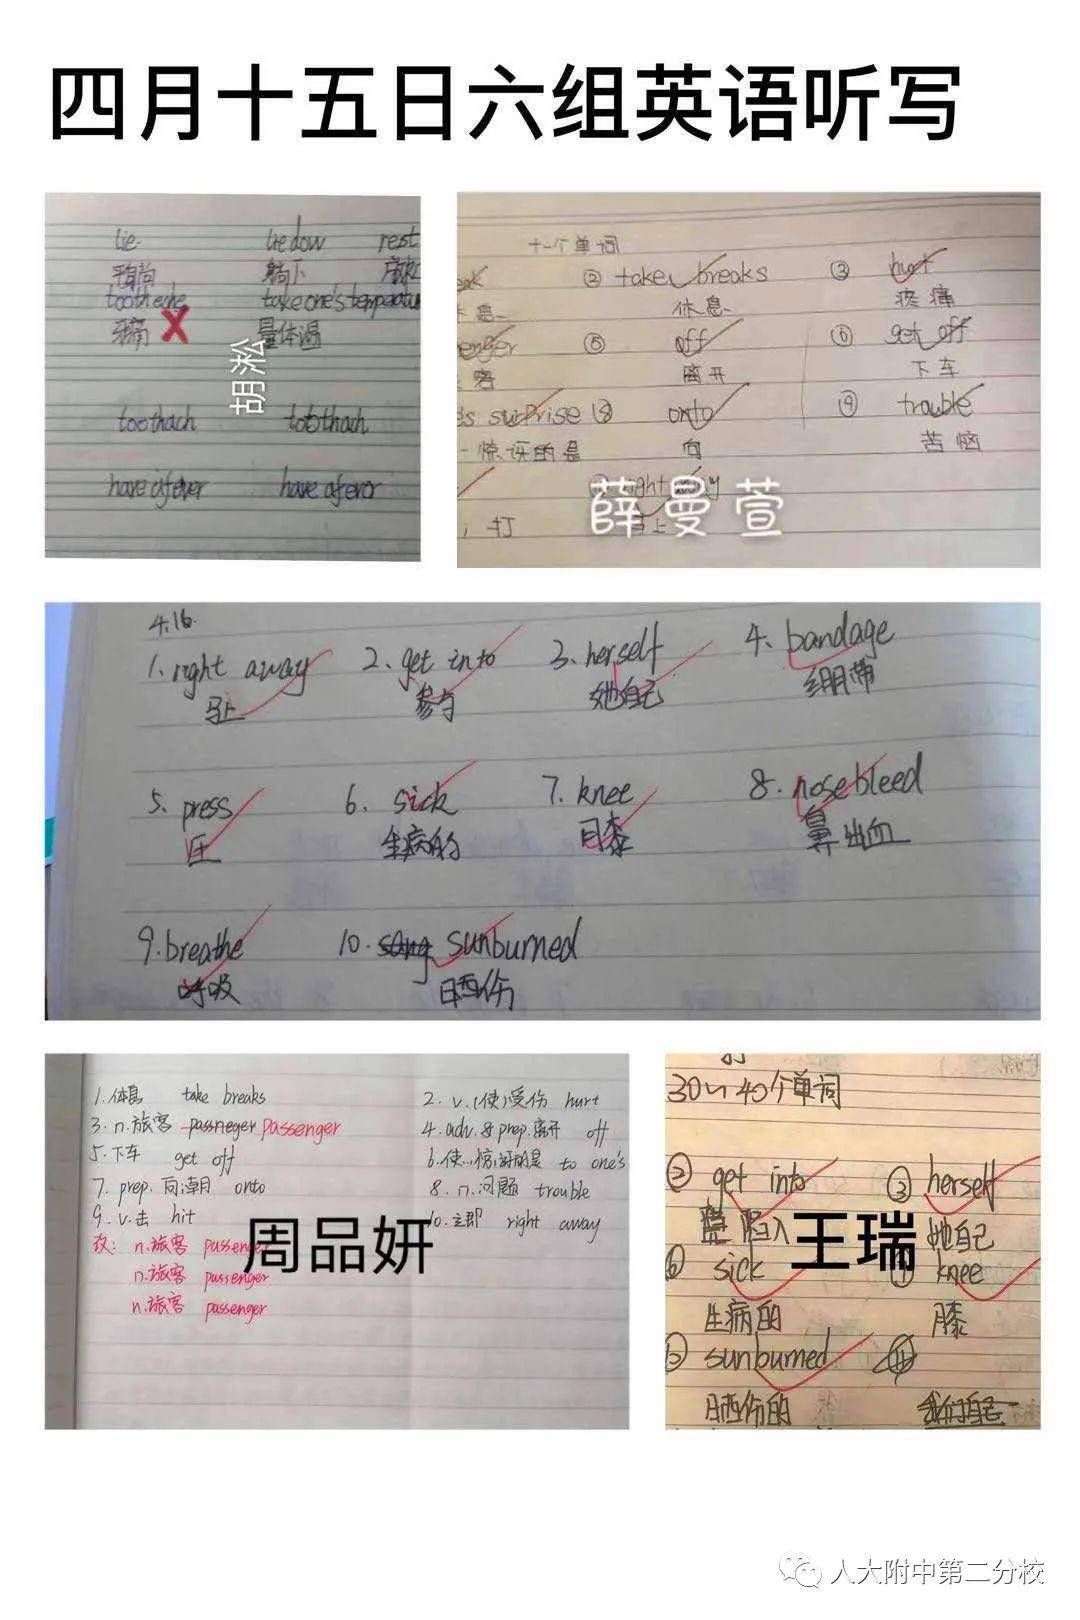 四月十五日六组英语听写
lie. lie dow rest
躺下
toothache take one's temperatu
牙痛 X 量体温
胡淞
toothach toothach
have a fever have a fevor
十一个单词
② take breaks ③ hurt
息 休息 疼痛
enger ⑤ off ⑥ get off
客 离开 下车
's surprise ⑧ onto ⑨ trouble
惊讶的是 向 苦恼
right away
打 马上
薛曼萱
4.16.
1. right away 2. get into 3. herself 4. bandage
马上 参与 她自己 绷带
5. press 6. sick 7. knee 8. nosebleed
压 生病的 膝 鼻出血
9. breathe 10. sunburned
呼吸 晒伤
1. 休息 take breaks 2. v.(使)受伤 hurt
3. n.旅客 passneger passenger 4. adv.&prep.离开 off
5. 下车 get off 6. 使...惊讶的是 to one's
7. prep. 向;朝 onto 8. n.问题 trouble
9. v.击 hit 10. 立即 right away
改: n.旅客 passenger
n.旅客 passenger
n.旅客 passenger
周品妍
30~40个单词
② get into ③ herself
陷入 她自己
⑥ sick knee
生病的 膝
sunburned
晒伤的 我们自己
王瑞
人大附中第二分校